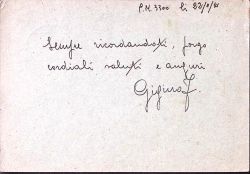 P.M. 3300 li 22/9/41
Sempre ricordandoti, porgo
cordiali saluti e auguri